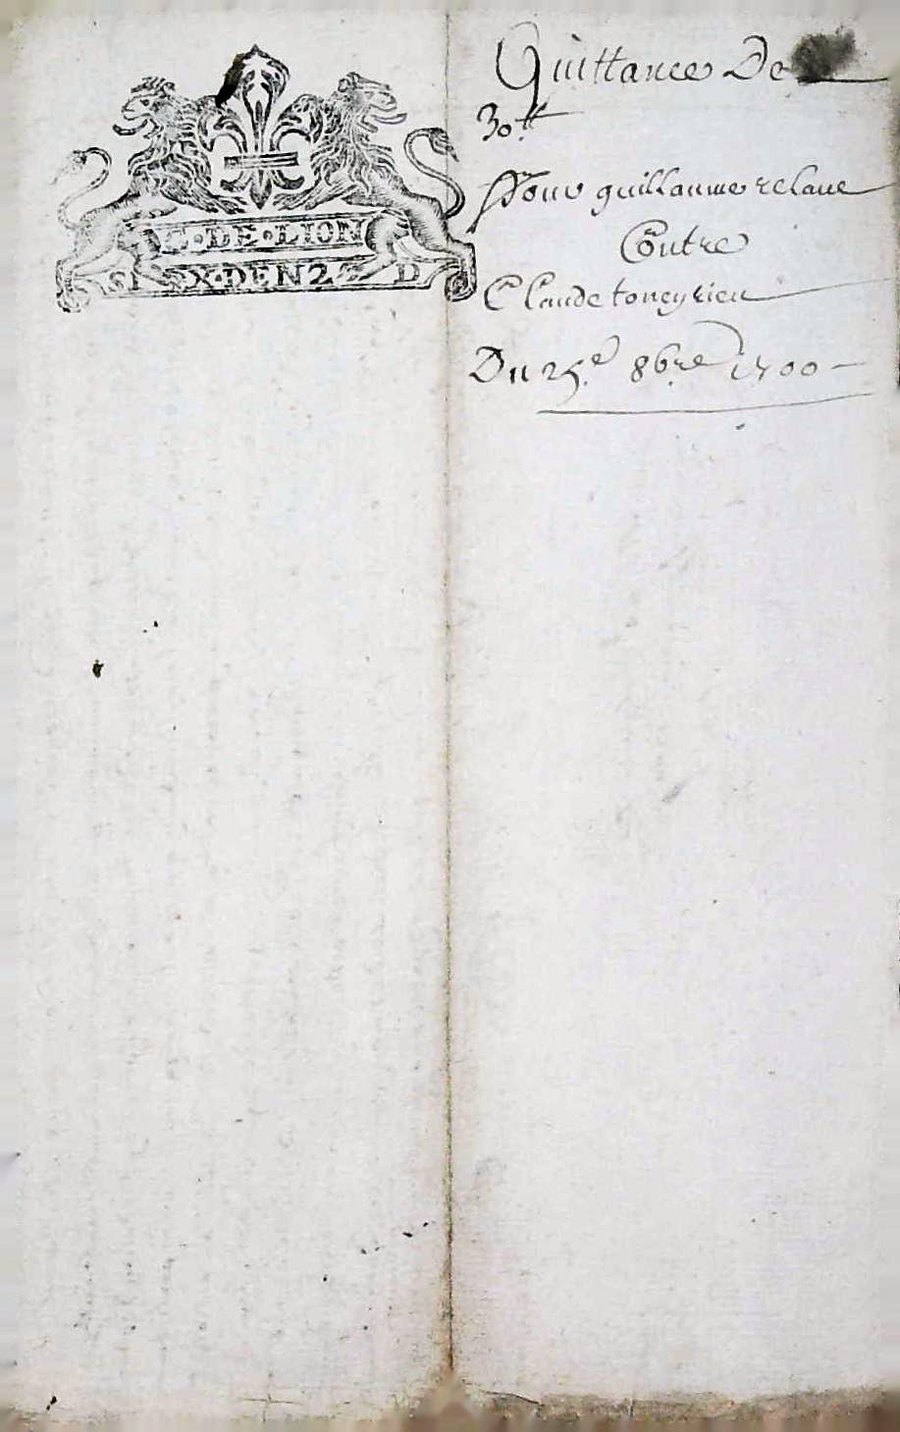 G·DE·LION
SIX·DEN 2 D
Quittance De
30.tt
Pour guillaume relaue
Contre
Claude toneyrieu
Du 25.e 8b.re 1700